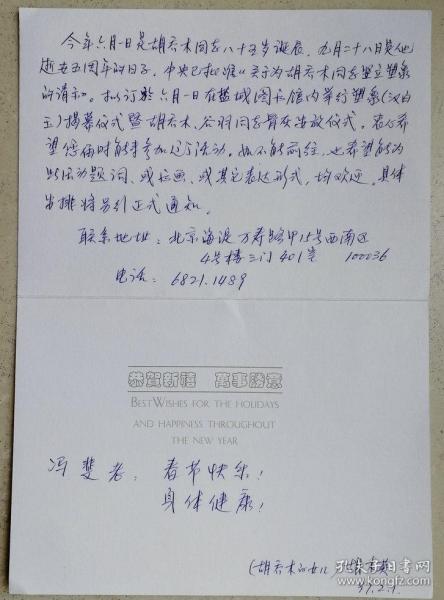 今年六月一日是胡乔木同志八十五岁诞辰，九月二十八日是他
逝世五周年的日子，中央已批准《关于为胡乔木同志竖立塑象
的请示》。拟订于六月一日在盐城图书馆内举行塑象（汉白
玉）揭幕仪式暨胡乔木、谷羽同志骨灰安放仪式。衷心希
望您届时能来参加这个活动。如不能前往，也希望能为
此活动题词、或绘画、或其它表达形式，均欢迎。具体
安排将另行正式通知。
联系地址：北京海淀万寿路甲15号西南区
4号楼三门401室 100036
电话：6821.1489
恭賀新禧 萬事勝意
BEST WISHES FOR THE HOLIDAYS
AND HAPPINESS THROUGHOUT
THE NEW YEAR
冯斐老：春节快乐！
身体健康！
（胡乔木的女儿）胡木英
97.2.1.
孔夫子旧书网